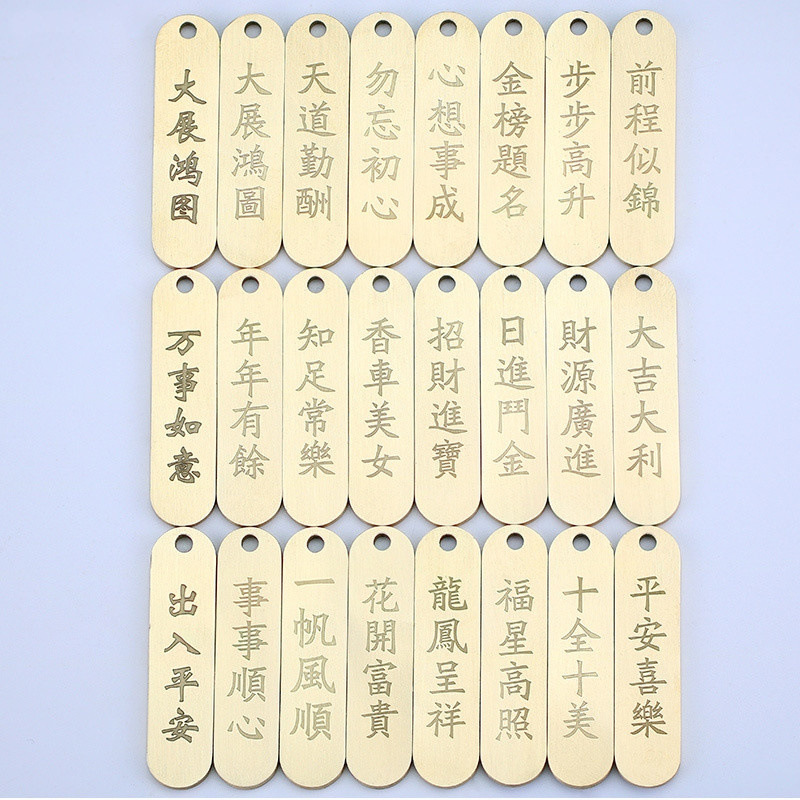 大展鸿图
大展鴻圖
天道勤酬
勿忘初心
心想事成
金榜題名
步步高升
前程似錦
万事如意
年年有餘
知足常樂
香車美女
招財進寶
日進鬥金
財源廣進
大吉大利
出入平安
事事順心
一帆風順
花開富貴
龍鳳呈祥
福星高照
十全十美
平安喜樂